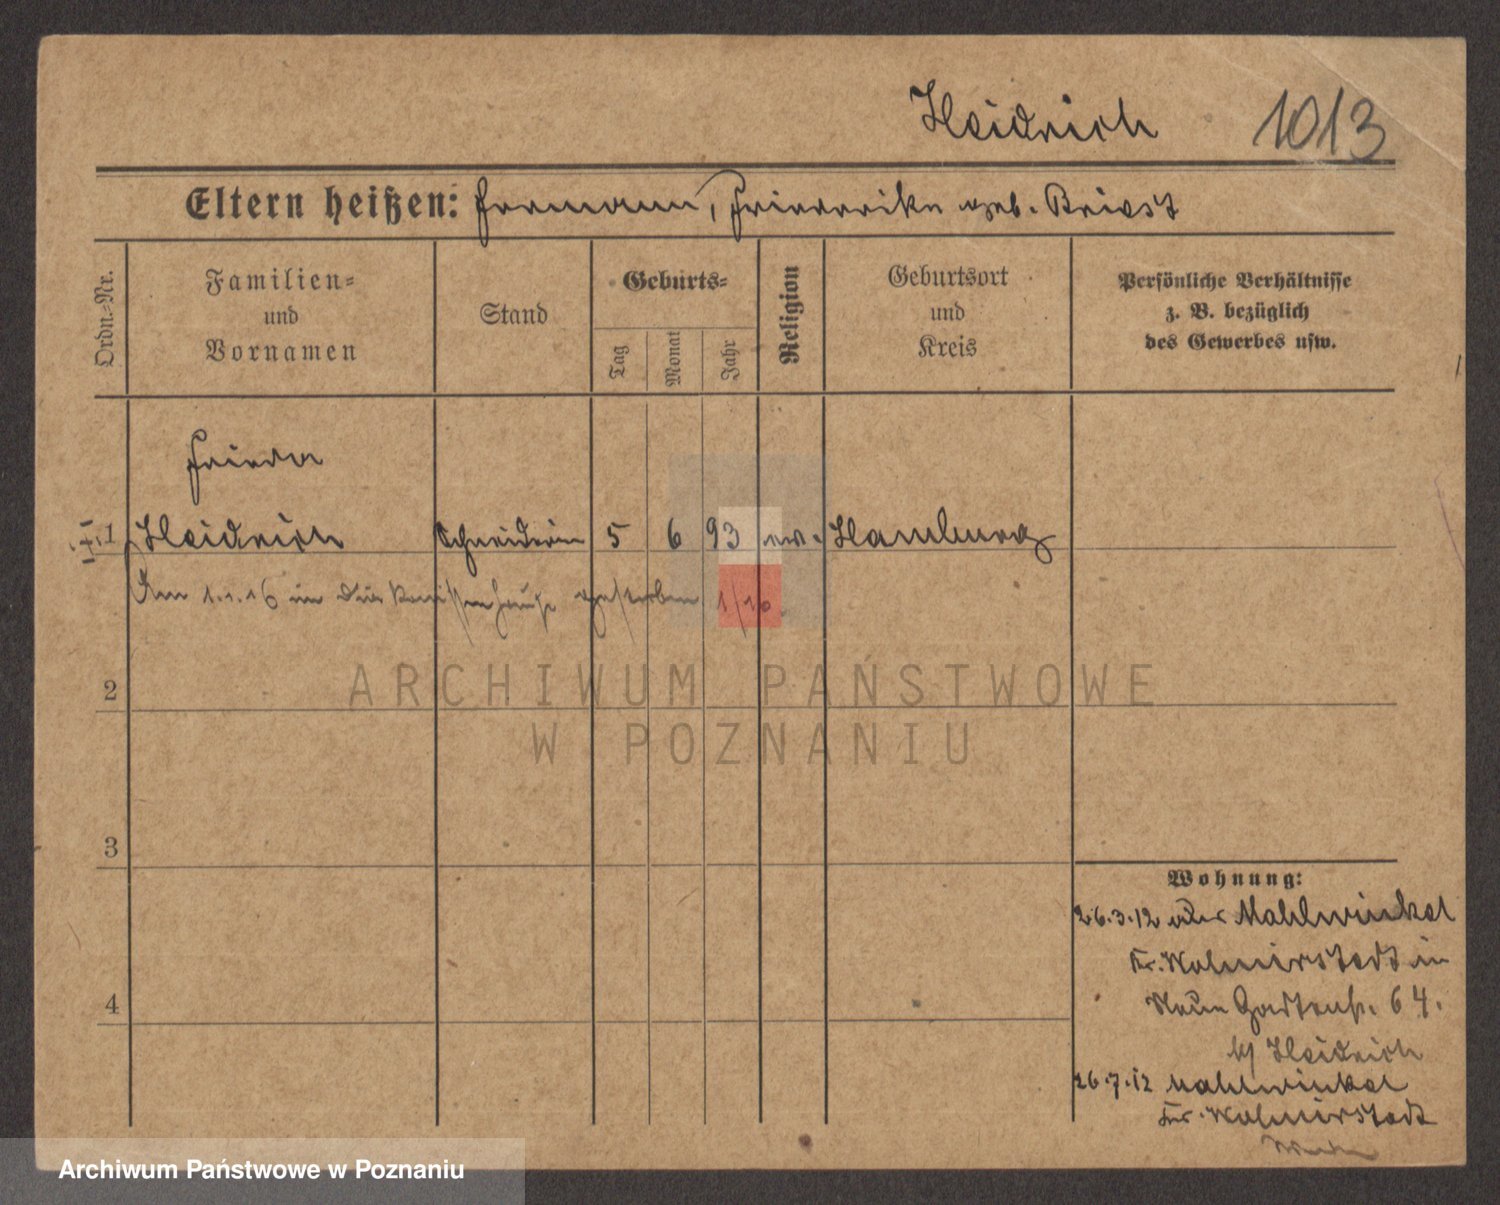 Heidrich 1013
Eltern heißen: Hermann, Friederike geb. Briest
Ordn.-Nr.
Familien-
und
Vornamen
Stand
Geburts-
Tag
Monat
Jahr
Religion
Geburtsort
und
Kreis
Persönliche Verhältnisse
z. B. bezüglich
des Gewerbes usw.
Frieda
1 Heidrich Schneiderin 5 6 93 ev. Hamburg
Am 1.1.16 im gestorben 1/10
2
ARCHIWUM PAŃSTWOWE
W POZNANIU
3
Wohnung:
26.3.12 Mahlwinkel
Kr. Wolmirstedt in
Neue Gartenstr. 64.
b/ Heidrich
4
26.7.12 Mahlwinkel
Kr. Wolmirstedt
Archiwum Państwowe w Poznaniu